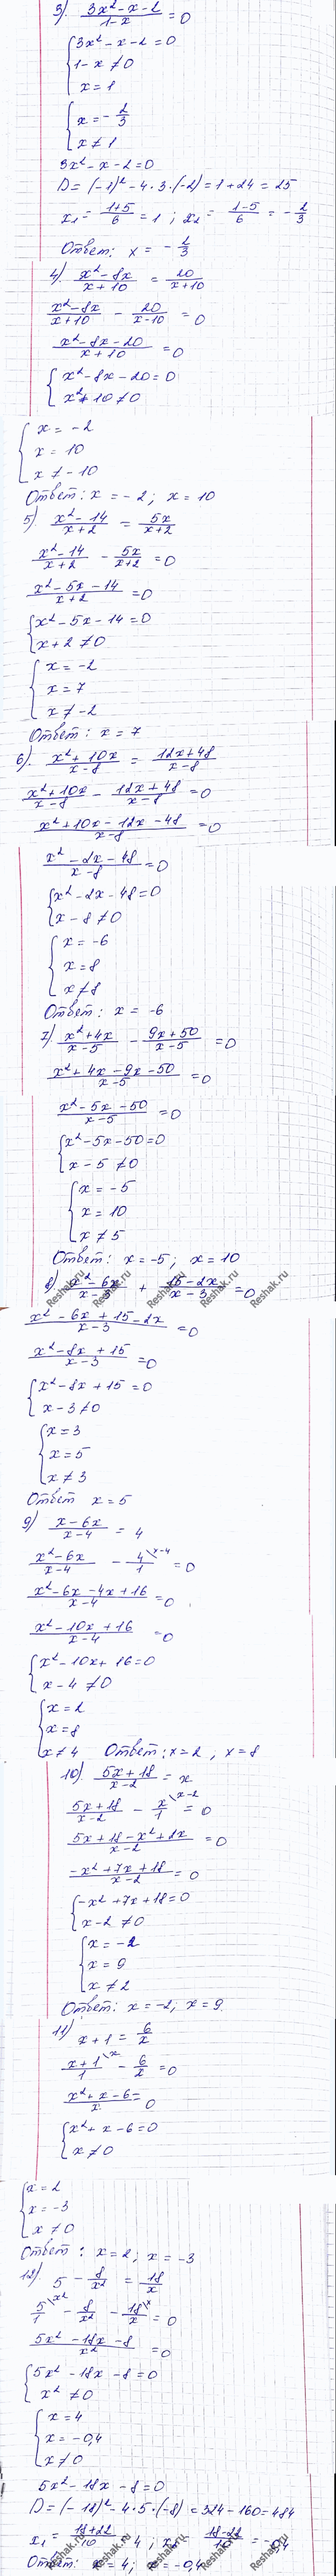 3) (3x² - x - 2)/(1-x) = 0
{3x² - x - 2 = 0
1 - x ≠ 0
x = 1
{x = -2/3
x ≠ 1
3x² - x - 2 = 0
D = (-1)² - 4·3·(-2) = 1 + 24 = 25
x₁ = (1+5)/6 = 1 ; x₂ = (1-5)/6 = -2/3
Ответ: x = -2/3
4) (x² - 8x)/(x+10) = 20/(x+10)
(x² - 8x)/(x+10) - 20/(x-10) = 0
(x² - 8x - 20)/(x+10) = 0
{x² - 8x - 20 = 0
x² + 10 ≠ 0
{x = -2
x = 10
x ≠ -10
Ответ: x = -2; x = 10
5) (x² - 14)/(x+2) = 5x/(x+2)
(x² - 14)/(x+2) - 5x/(x+2) = 0
(x² - 5x - 14)/(x+2) = 0
{x² - 5x - 14 = 0
x + 2 ≠ 0
{x = -2
x = 7
x ≠ -2
Ответ: x = 7
6) (x² + 10x)/(x-8) = (12x + 48)/(x-8)
(x² + 10x)/(x-8) - (12x + 48)/(x-8) = 0
(x² + 10x - 12x - 48)/(x-8) = 0
(x² - 2x - 48)/(x-8) = 0
{x² - 2x - 48 = 0
x - 8 ≠ 0
{x = -6
x = 8
x ≠ 8
Ответ: x = -6
7) (x² + 4x)/(x-5) - (9x + 50)/(x-5) = 0
(x² + 4x - 9x - 50)/(x-5) = 0
(x² - 5x - 50)/(x-5) = 0
{x² - 5x - 50 = 0
x - 5 ≠ 0
{x = -5
x = 10
x ≠ 5
Ответ: x = -5; x = 10
8) (x² - 6x)/(x-3) + (15 - 2x)/(x-3) = 0
Reshak.ru Reshak.ru Reshak.ru Reshak.ru Reshak.ru
(x² - 6x + 15 - 2x)/(x-3) = 0
(x² - 8x + 15)/(x-3) = 0
{x² - 8x + 15 = 0
x - 3 ≠ 0
{x = 3
x = 5
x ≠ 3
Ответ x = 5
9) (x - 6x)/(x-4) = 4
(x² - 6x)/(x-4) - 4/1 \x-4 = 0
(x² - 6x - 4x + 16)/(x-4) = 0
(x² - 10x + 16)/(x-4) = 0
{x² - 10x + 16 = 0
x - 4 ≠ 0
{x = 2
x = 8
x ≠ 4 Ответ: x = 2, x = 8
10) (5x + 18)/(x-2) = x
(5x + 18)/(x-2) - x/1 \x-2 = 0
(5x + 18 - x² + 2x)/(x-2) = 0
(-x² + 7x + 18)/(x-2) = 0
{-x² + 7x + 18 = 0
x - 2 ≠ 0
{x = -2
x = 9
x ≠ 2
Ответ: x = -2; x = 9.
11) x + 1 = 6/x
(x+1)/1 \x - 6/x = 0
(x² + x - 6)/x = 0
{x² + x - 6 = 0
x ≠ 0
{x = 2
x = -3
x ≠ 0
Ответ: x = 2; x = -3
12) 5 - 8/x² = 18/x
5/1 \x² - 8/x² - 18/x \x = 0
(5x² - 18x - 8)/x² = 0
{5x² - 18x - 8 = 0
x² ≠ 0
{x = 4
x = -0,4
x ≠ 0
5x² - 18x - 8 = 0
D = (-18)² - 4·5·(-8) = 324 - 160 = 484
x₁ = (18+22)/10 = 4 ; x₂ = (18-22)/10 = -0,4
Ответ: x = 4; x = -0,4
Reshak.ru Reshak.ru Reshak.ru Reshak.ru Reshak.ru